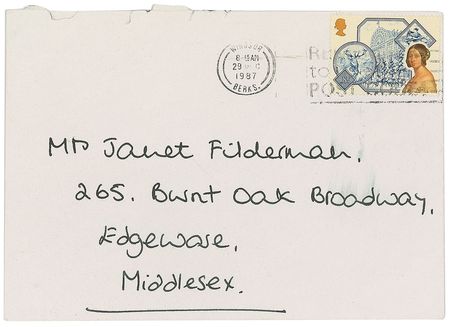 WINDSOR
8-15AM
1987
BERKS.
to
POST
Mrs Janet Filderman,
265. Burnt Oak Broadway,
Edgeware,
Middlesex.